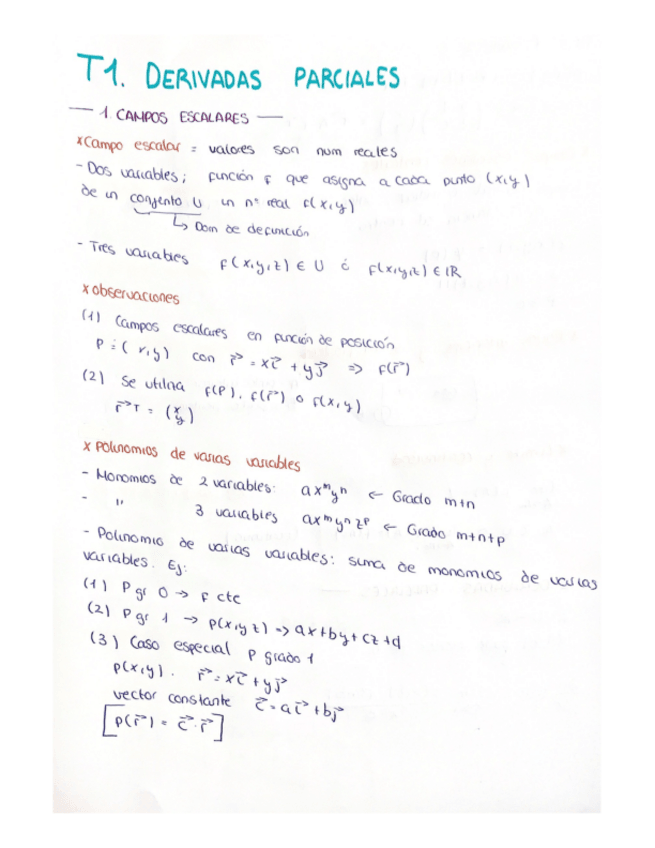 T1. DERIVADAS PARCIALES
— 1 CAMPOS ESCALARES —
x Campo escalar = valores son num reales
- Dos variables; función f que asigna a cada punto (x,y)
de un conjento U un nº real f(x,y)
↳ Dom de definición
- Tres variables f(x,y,z) ∈ U ó f(x,y,z) ∈ IR
x observaciones
(1) Campos escalares en función de posición
P = (x,y) con r⃗ = xi⃗ + yj⃗ => f(r⃗)
(2) Se utiliza f(P), f(r⃗) o f(x,y)
r⃗ᵀ = (x y)
x Polinomios de varias variables
- Monomios de 2 variables: axᵐyⁿ ← Grado m+n
- " 3 variables axᵐyⁿzᵖ ← Grado m+n+p
- Polinomio de varias variables: suma de monomios de varias
variables. Ej:
(1) P gr 0 → f cte
(2) P gr 1 → p(x,y z) => ax+by+cz+d
(3) Caso especial p grado 1
p(x,y). r⃗ = xi⃗ + yj⃗
vector constante c⃗ = ai⃗ + bj⃗
[p(r⃗) = c⃗·r⃗]